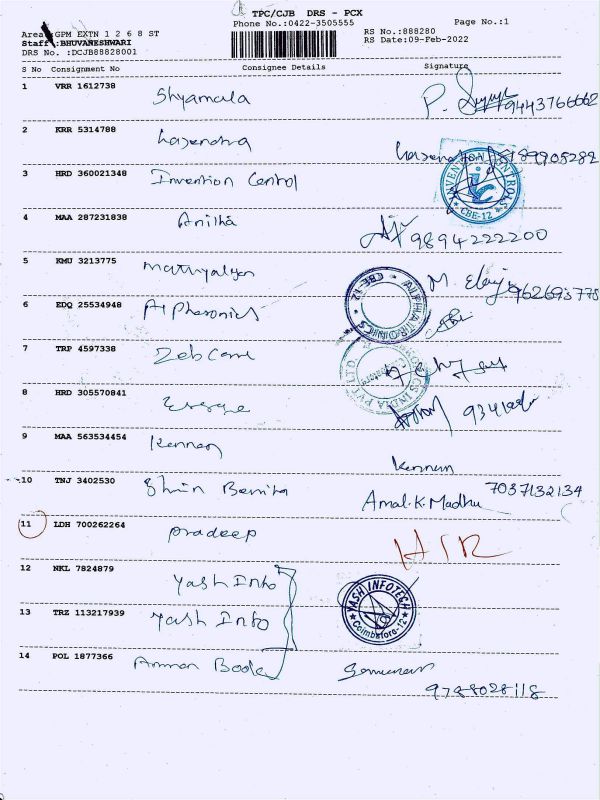 TPC/CJB DRS - PCX
Phone No.:0422-3505555 Page No.:1
Area :GPM EXTN 1 2 6 8 ST RS No.:888280
Staff :BHUVANESHWARI RS Date:09-Feb-2022
DRS No. :DCJB88828001
S No Consignment No Consignee Details Signature
1 VRR 1612738 Shyamala P. 9443766662
2 KRR 5314788
3 HRD 360021348 Invention Control INVENTION CONTROLS CBE-12
4 MAA 287231838 Anitha 9894222200
5 KMU 3213775 M
6 EDQ 25534948 Alphasonics CBE-12
7 TRP 4597338 Zeb Care
8 HRD 305570841
9 MAA 563534454 Kannan Kannan
10 TNJ 3402530 Shin Benita Amal.K.Madhu 7037132134
11 LDH 700262264 Pradeep
12 NKL 7824879 Yash Info YASH INFOTECH Coimbatore-12
13 TRZ 113217939 Yash Info
14 POL 1877366 Amman Books
9788028118